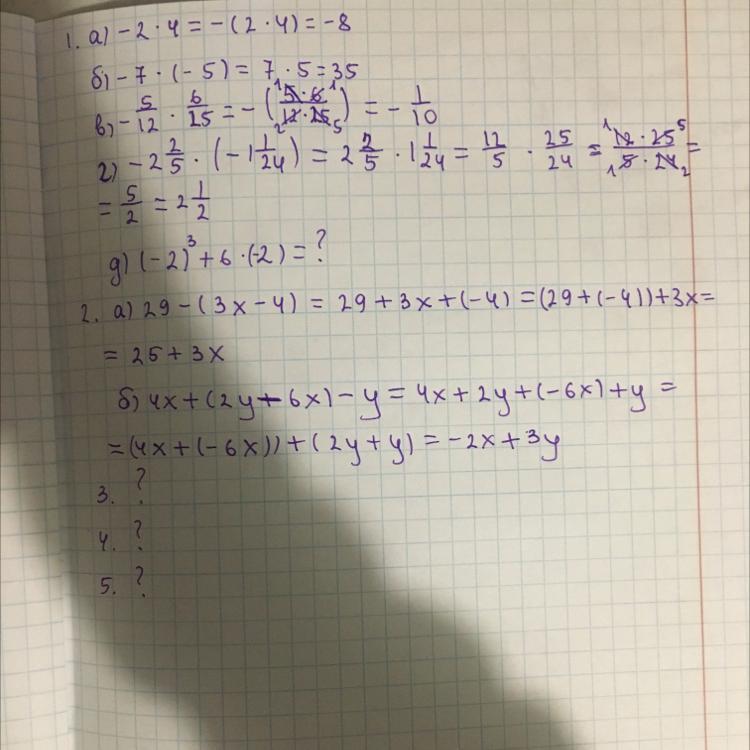 1. а) -2 · 4 = -(2 · 4) = -8
б) -7 · (-5) = 7 · 5 = 35
в) -5/12 · 6/25 = -(5·6/12·25) = -1/10
г) -2 2/5 · (-1 1/24) = 2 2/5 · 1 1/24 = 12/5 · 25/24 = 12·25/5·24 =
= 5/2 = 2 1/2
д) (-2)³ + 6 · (-2) = ?
2. а) 29 - (3x - 4) = 29 + 3x + (-4) = (29 + (-4)) + 3x =
= 25 + 3x
б) 4x + (2y - 6x) - y = 4x + 2y + (-6x) + y =
= (4x + (-6x)) + (2y + y) = -2x + 3y
3. ?
4. ?
5. ?